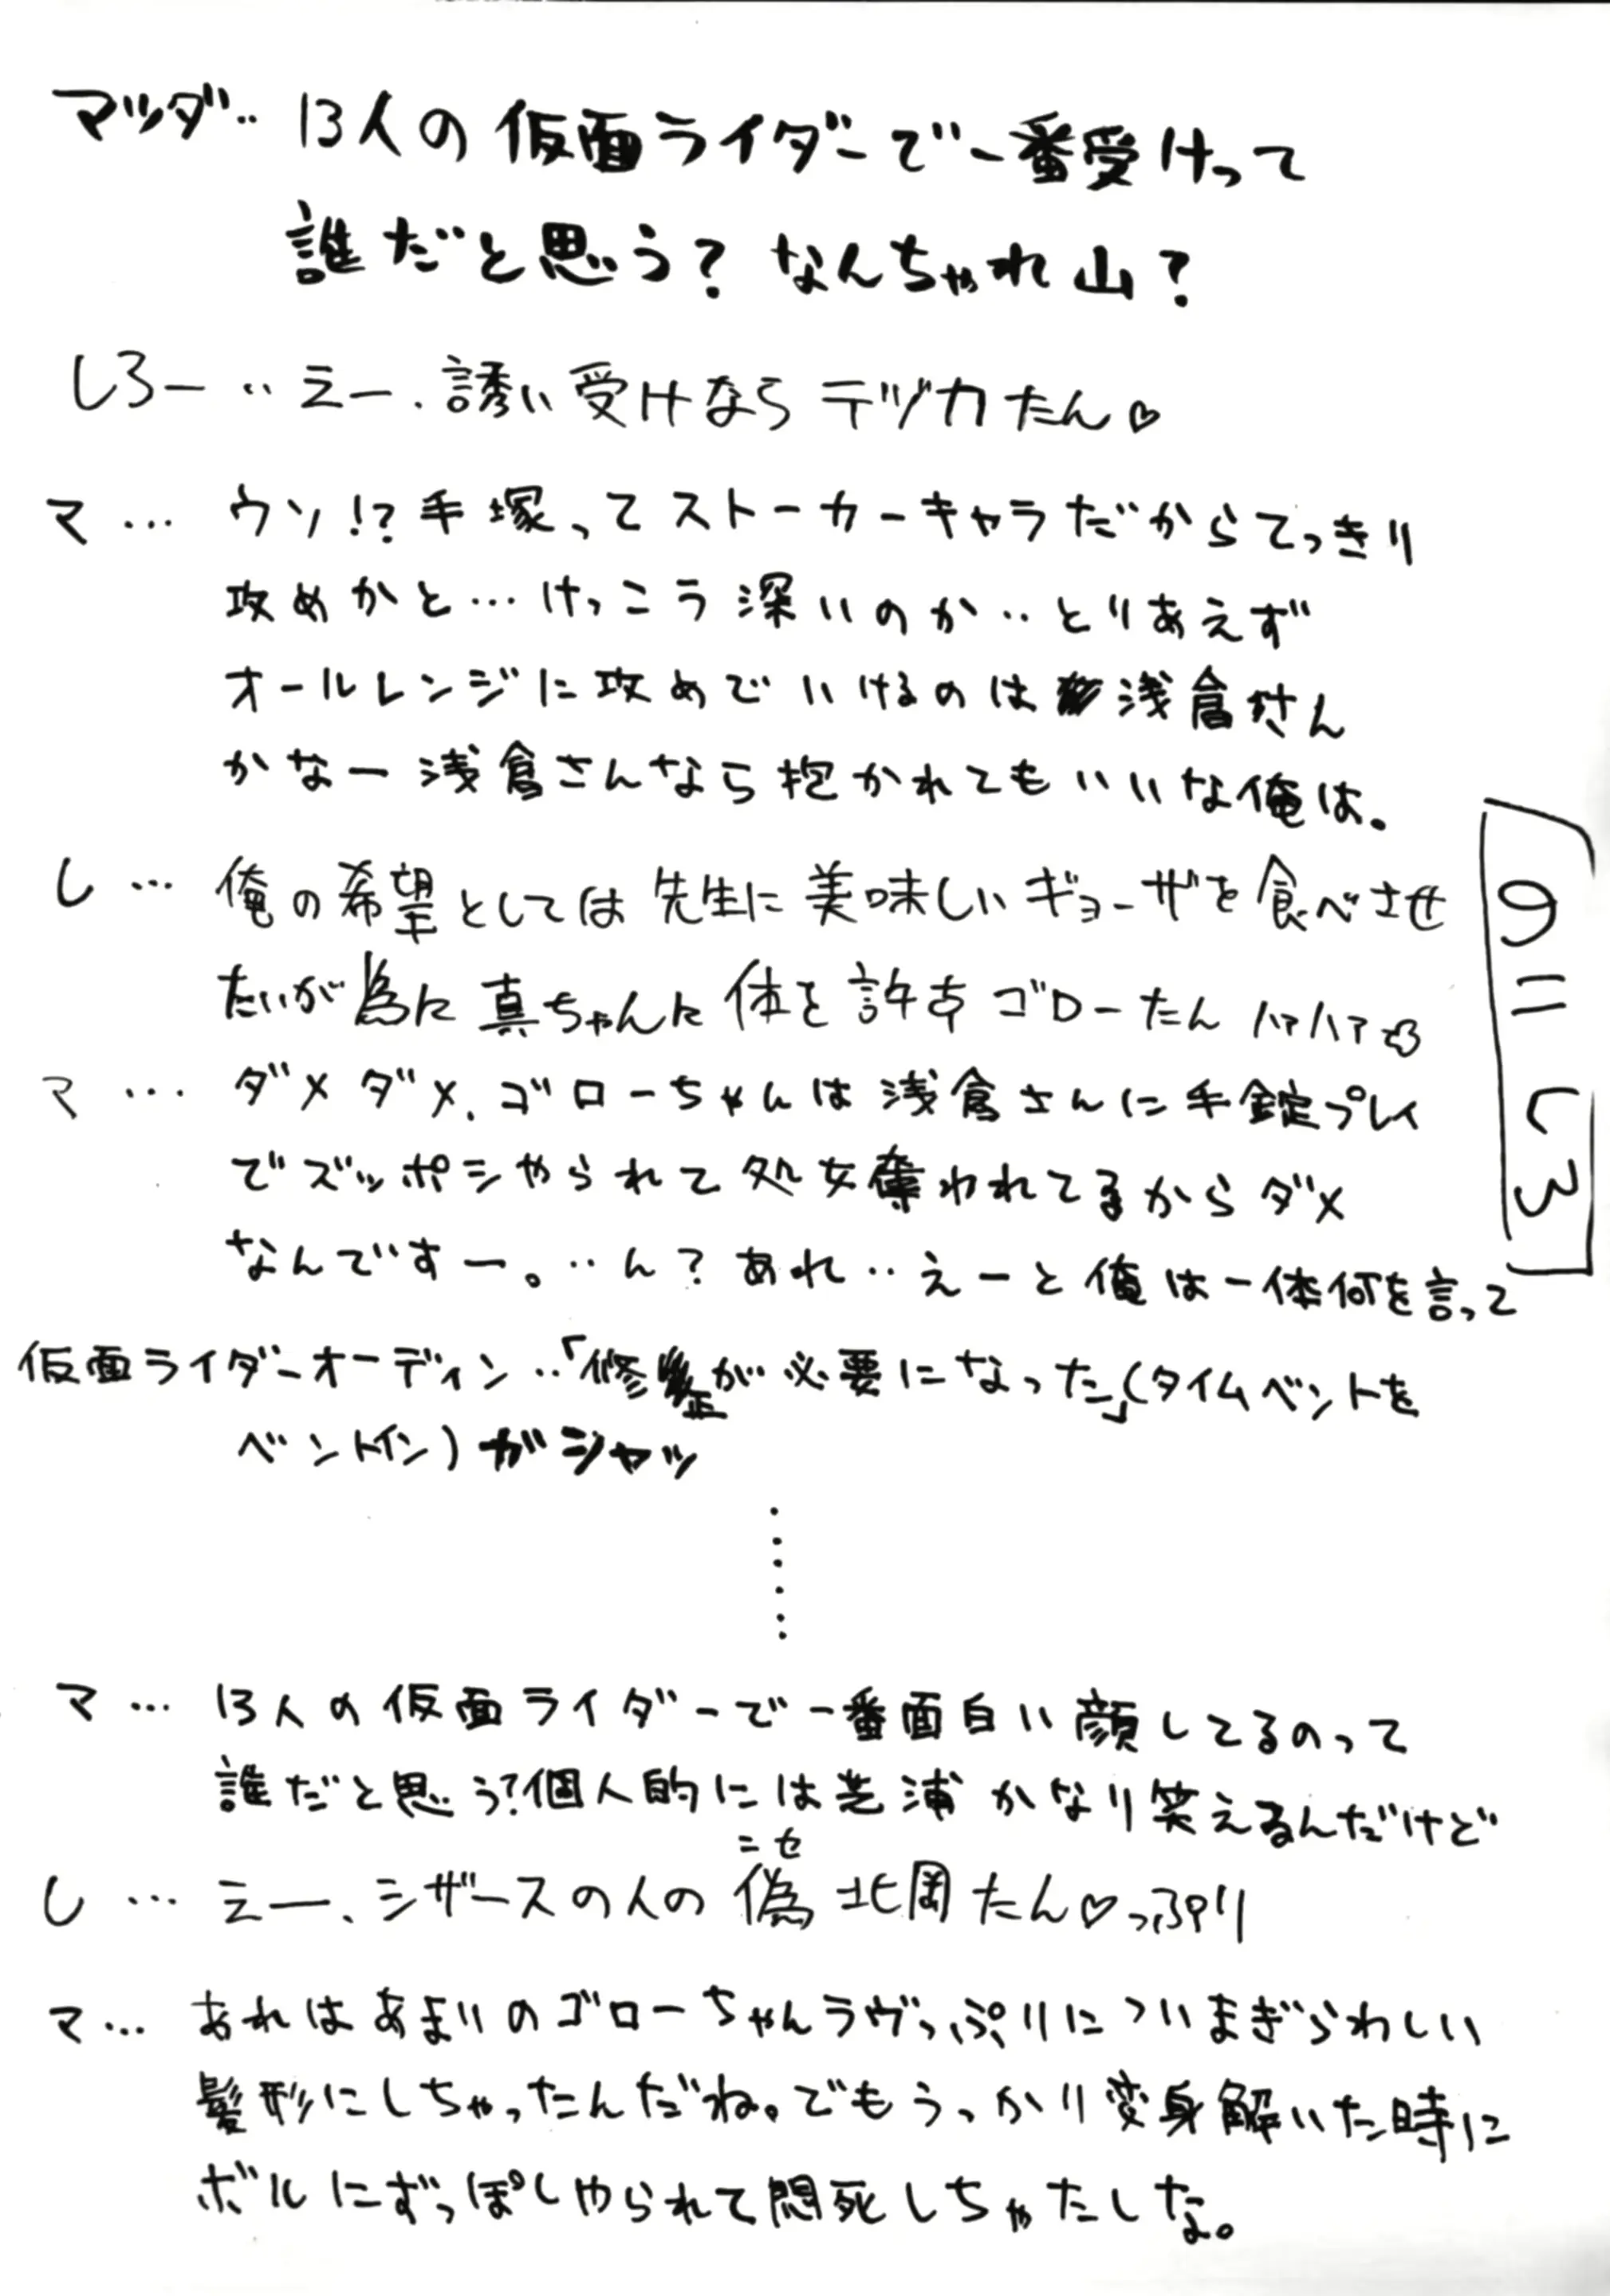 マツダ‥ 13人の仮面ライダーで一番受けって
誰だと思う？なんちゃれ山？
しろー ‥ えー、誘い受けなら テヅカたん♡
マ … ウソ!? 手塚ってストーカーキャラだからてっきり
攻めかと…けっこう深いのか‥とりあえず
オールレンジに攻めでいけるのは 浅倉さん
かなー浅倉さんなら抱かれてもいいな俺は。
し … 俺の希望としては先生に美味しいギョーザを食べさせ
たいが為に真ちゃんに体を許す ゴローたん ハァハァ♡
マ … ダメダメ、ゴローちゃんは浅倉さんに手錠プレイ
でズッポシやられて処女奪われてるからダメ
なんですー。‥ん？あれ‥えーと俺は一体何を言って
仮面ライダーオーディン‥「修整が必要になった」(タイムベントを
ベントイン) ガシャッ
……
マ … 13人の仮面ライダーで一番面白い顔してるのって
誰だと思う？個人的には芝浦かなり笑えるんだけど
し … えー、シザースの人の偽北岡たん♡っぷり
ニセ
マ … あれはあまりのゴローちゃんラヴっぷりについまぎらわしい
髪形にしちゃったんだね。でもうっかり変身解いた時に
ボルにずっぽしやられて悶死しちゃたしな。